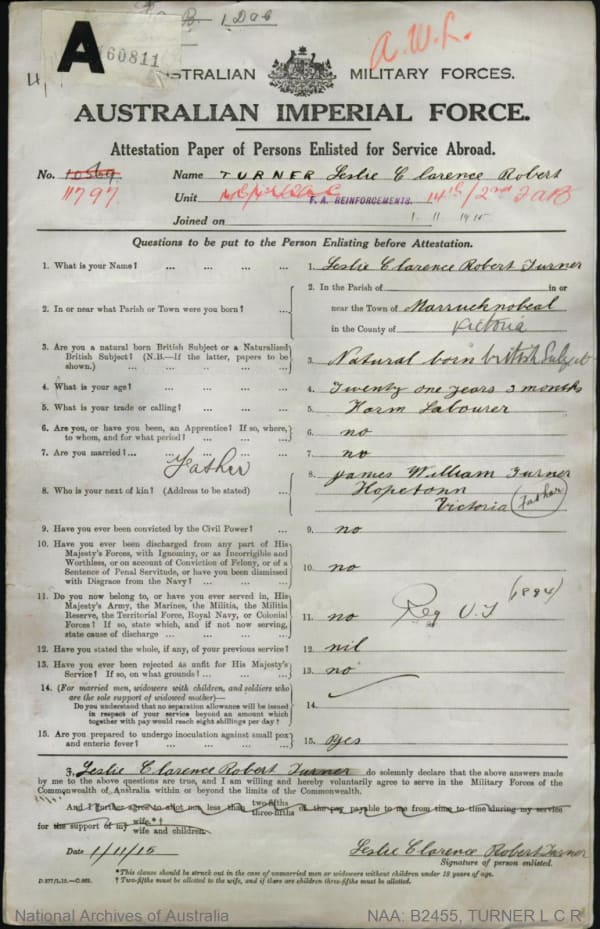 B. 1 Dac
A
60811
A.W.L.
AUSTRALIAN MILITARY FORCES.
AUSTRALIAN IMPERIAL FORCE.
Attestation Paper of Persons Enlisted for Service Abroad.
No. 10569 Name TURNER Leslie Clarence Robert
11797 Unit F.A. REINFORCEMENTS. 14th/2nd FAB
Joined on 1 11 1915
Questions to be put to the Person Enlisting before Attestation.
1. What is your Name? ... ... ... 1. Leslie Clarence Robert Turner
2. In or near what Parish or Town were you born? ... 2. In the Parish of in or
near the Town of Warrucknabeal
in the County of Victoria
3. Are you a natural born British Subject or a Naturalised
British Subject? (N.B.—If the latter, papers to be
shown.) ... ... ... 3. Natural born british Subject
4. What is your age? ... ... ... 4. Twenty one years 3 months
5. What is your trade or calling? ... ... 5. Farm Labourer
6. Are you, or have you been, an Apprentice? If so, where,
to whom, and for what period? ... ... 6. no
7. Are you married? ... ... ... 7. no
Father
8. James William Turner
8. Who is your next of kin? (Address to be stated) ... Hopetoun
Victoria Father
9. Have you ever been convicted by the Civil Power? ... 9. no
10. Have you ever been discharged from any part of His
Majesty's Forces, with Ignominy, or as Incorrigible and
Worthless, or on account of Conviction of Felony, or of a
Sentence of Penal Servitude, or have you been dismissed
with Disgrace from the Navy? ... ... 10. no
11. Do you now belong to, or have you ever served in, His
Majesty's Army, the Marines, the Militia, the Militia
Reserve, the Territorial Force, Royal Navy, or Colonial
Forces? If so, state which, and if not now serving,
state cause of discharge ... ... ... 11. no Reg U.T (1894)
12. Have you stated the whole, if any, of your previous service? 12. nil
13. Have you ever been rejected as unfit for His Majesty's
Service? If so, on what grounds? ... ... 13. no
14. (For married men, widowers with children, and soldiers who
are the sole support of widowed mother)—
Do you understand that no separation allowance will be issued
in respect of your service beyond an amount which
together with pay would reach eight shillings per day? 14.
15. Are you prepared to undergo inoculation against small pox
and enteric fever? ... ... ... 15. yes
I, Leslie Clarence Robert Turner do solemnly declare that the above answers made
by me to the above questions are true, and I am willing and hereby voluntarily agree to serve in the Military Forces of the
Commonwealth of Australia within or beyond the limits of the Commonwealth.
And I further agree to allot not less than two-fifths three-fifths of the pay payable to me from time to time during my service
for the support of my wife.*† wife and children.
Date 1/11/15 Leslie Clarence Robert Turner
Signature of person enlisted.
*This clause should be struck out in the case of unmarried men or widowers without children under 18 years of age.
† Two-fifths must be allotted to the wife, and if there are children three-fifths must be allotted.
National Archives of Australia NAA: B2455, TURNER L C R